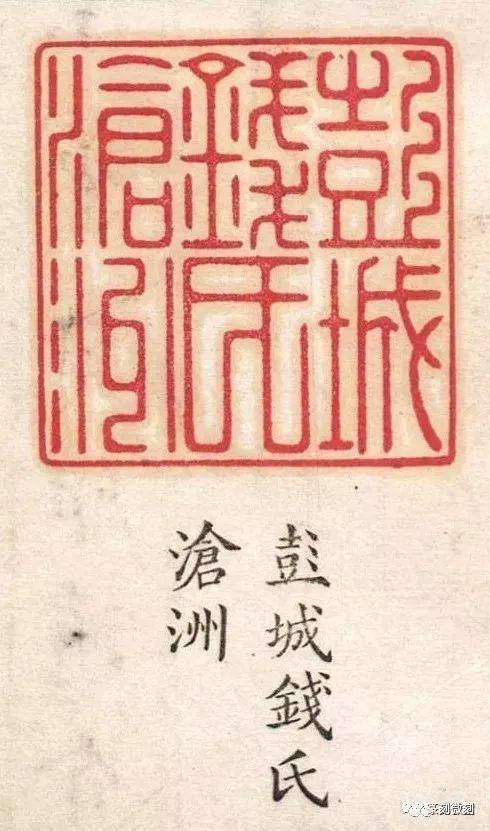 彭城
錢氏
滄洲
彭城錢氏
滄洲
篆刻微刻